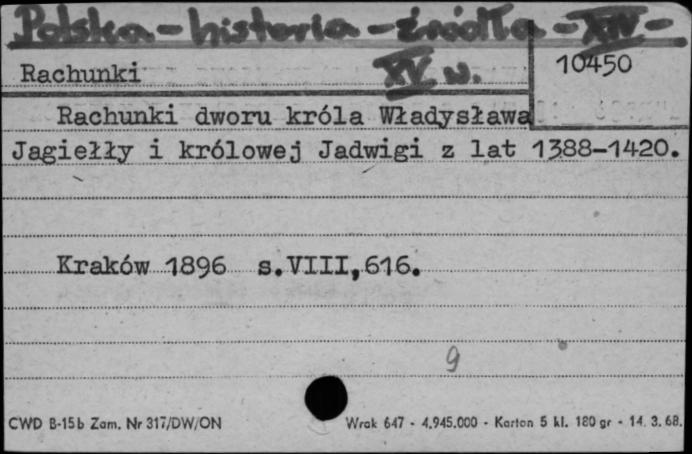 Polska - historia - źródła - XIV -
XV w.
Rachunki
10450
Rachunki dworu króla Władysława
Jagiełły i królowej Jadwigi z lat 1388-1420.
Kraków 1896 s.VIII,616.
9
CWD B-15b Zam. Nr 317/DW/ON
Wrak 647 - 4.945.000 - Karton 5 kl. 180 gr - 14. 3. 68.